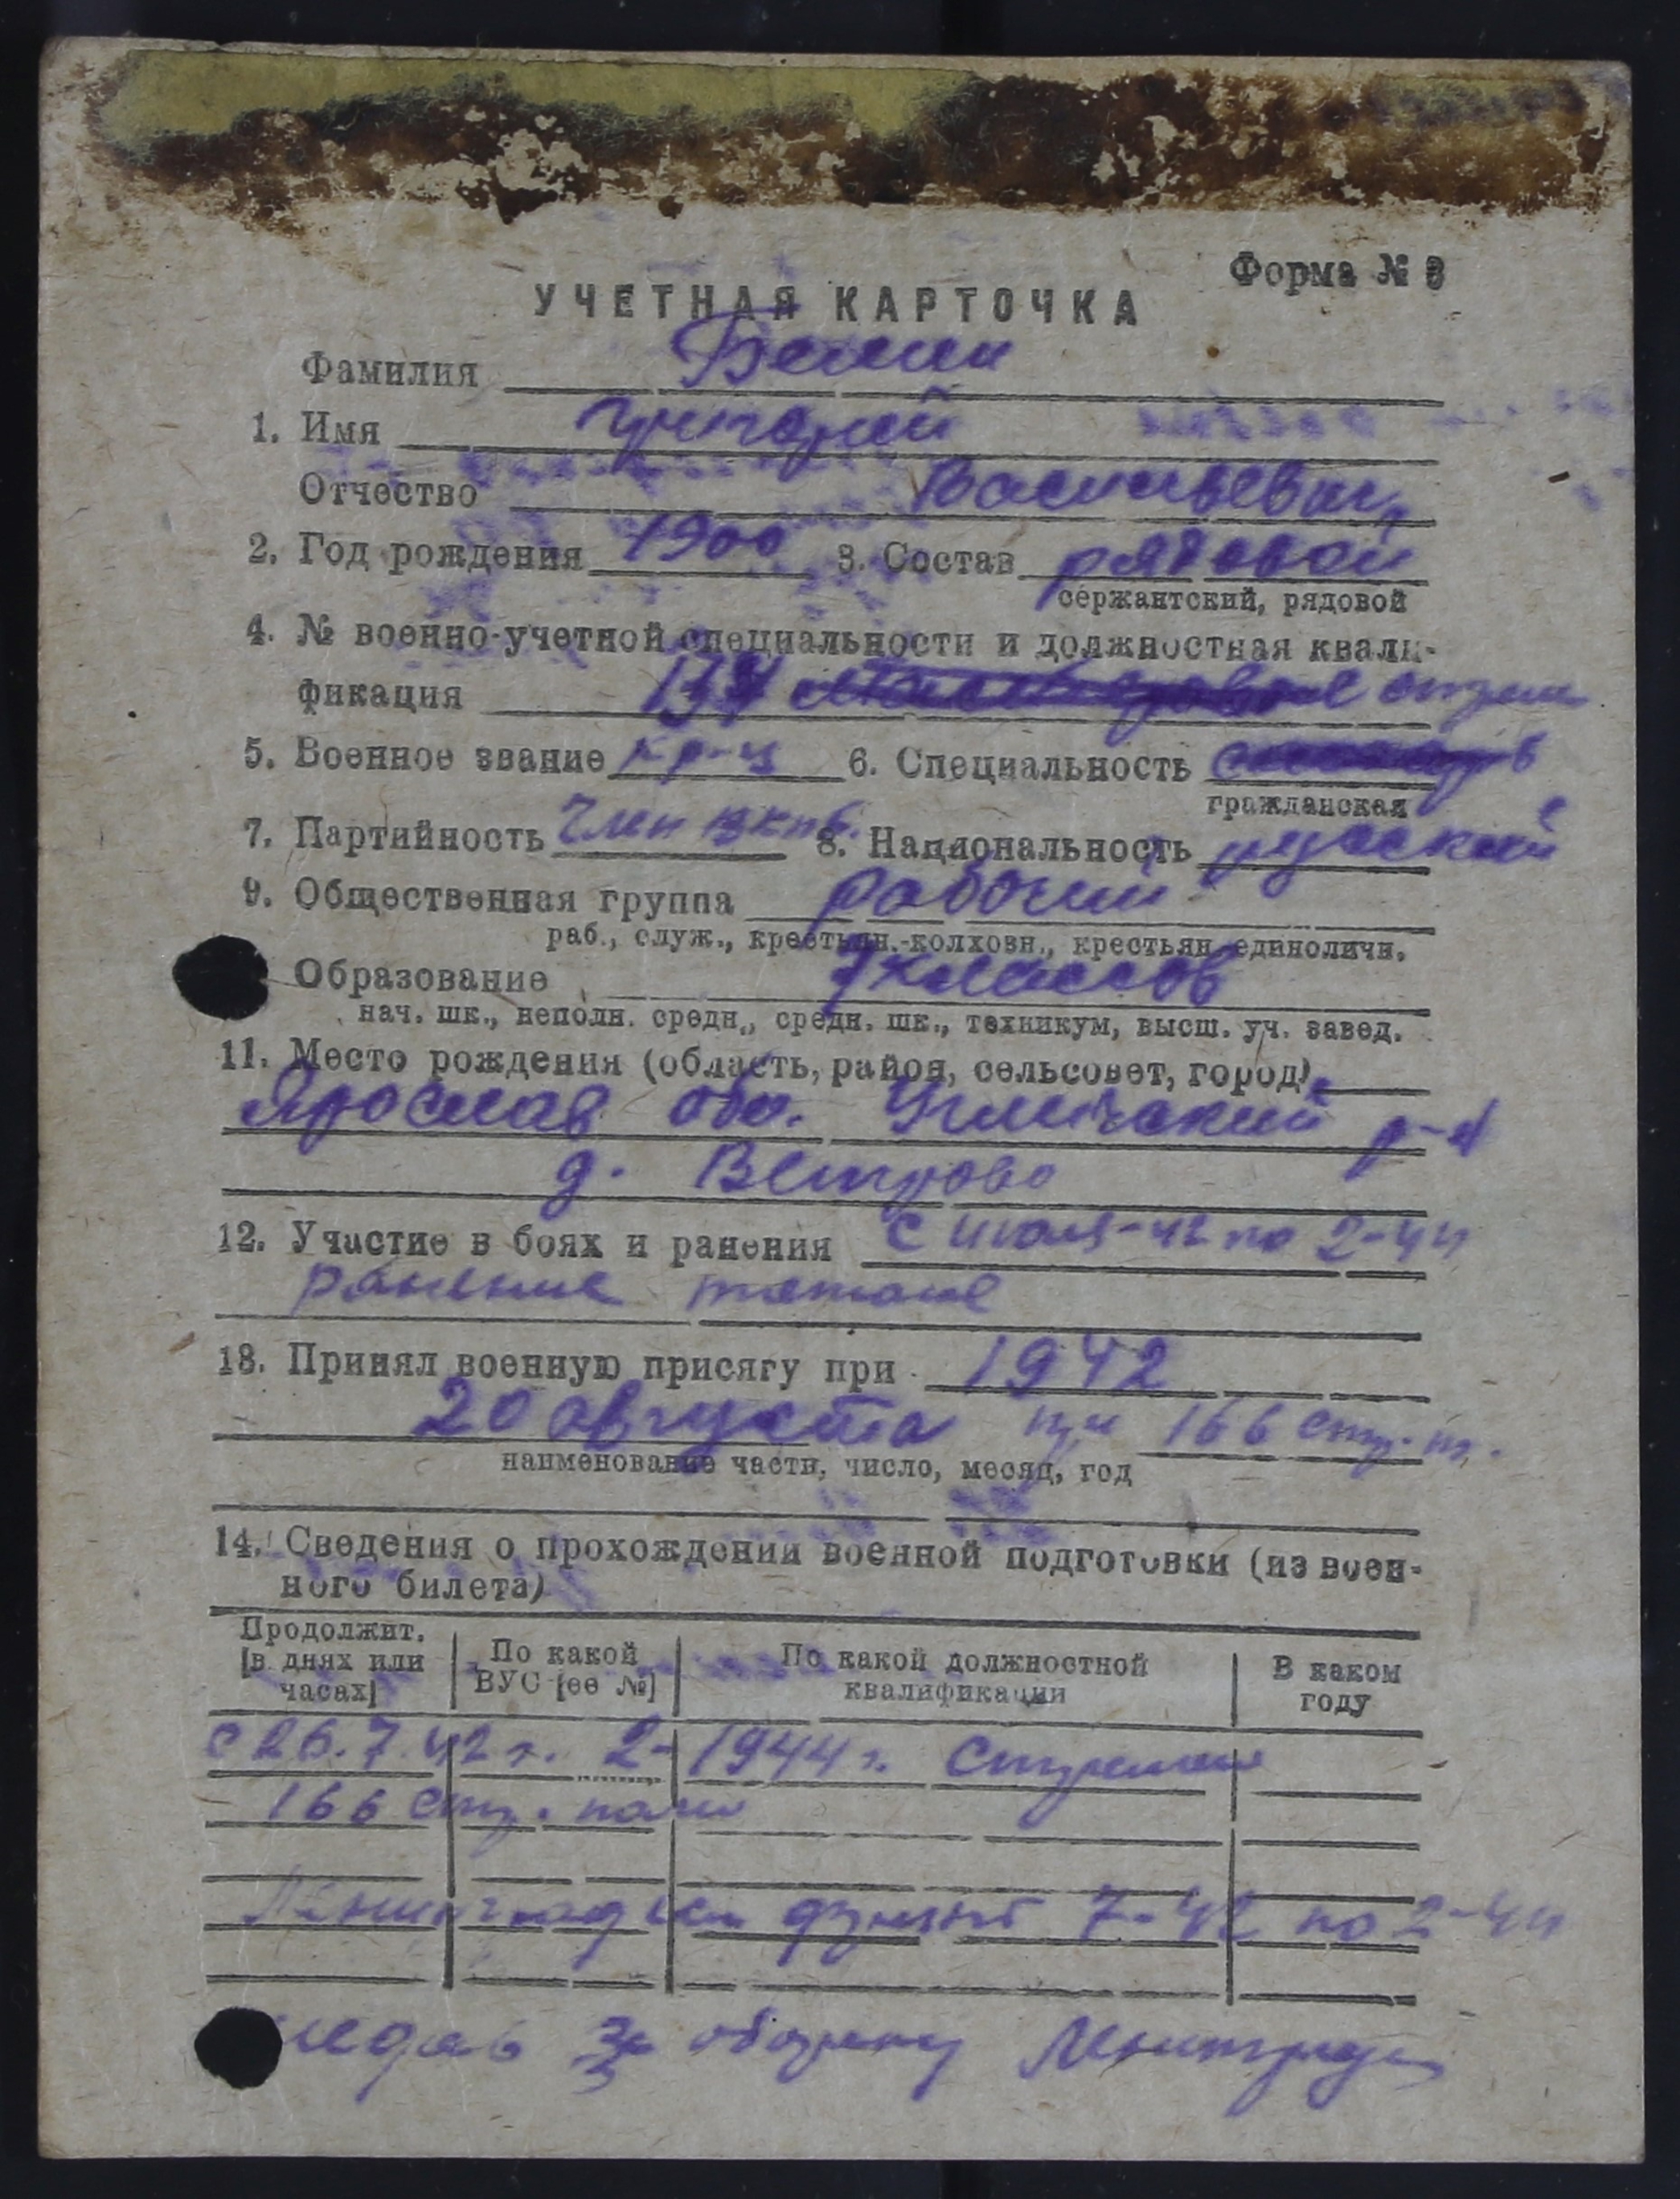 Форма № 3
УЧЕТНАЯ КАРТОЧКА
Фамилия
1. Имя Григорий
Отчество Васильевич
2. Год рождения 1900 3. Состав рядовой
сержантский, рядовой
4. № военно-учетной специальности и должностная квали-
фикация 134
5. Военное звание кр-ц 6. Специальность
гражданская
7. Партийность Член вкпб. 8. Национальность русский
9. Общественная группа рабочий
раб., служ., крестьян.-колхозн., крестьян. единоличн.
Образование 7 классов
нач. шк., неполн. средн., средн. шк., техникум, высш. уч. завед.
11. Место рождения (область, район, сельсовет, город)
Ярослав обл. Угличский р-н
д. Ветрово
12. Участие в боях и ранения с июля-42 по 2-44
ранение
13. Принял военную присягу при 1942
20 августа при 166 стр. п.
наименование части, число, месяц, год
14. Сведения о прохождении военной подготовки (из воен-
ного билета)
Продолжит. [в днях или часах] По какой ВУС [ее №] По какой должностной квалификации В каком году
с 26.7.42 г. 2-1944 г. Стрелком
166 стр. полк
Ленинградский фронт 7-42 по 2-44
медаль За оборону Ленинграда